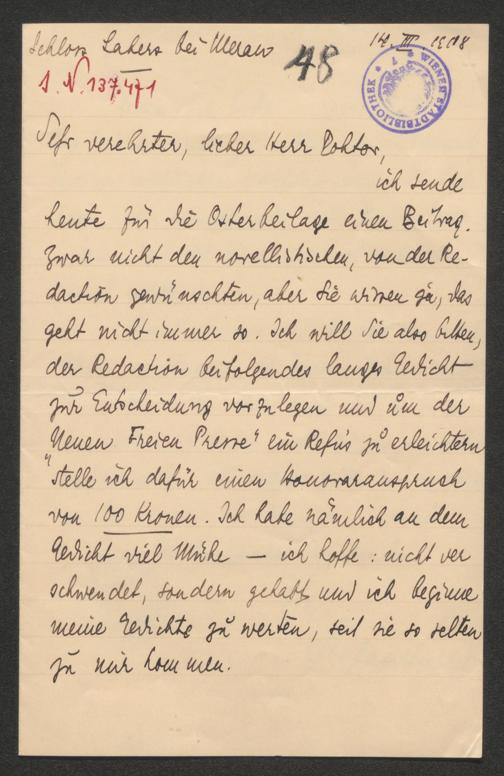 Schloss Labers bei Meran 14. III. 1908
48
J. N. 137.471
WIENER STADTBIBLIOTHEK
Sehr verehrter, lieber Herr Doktor,
ich sende
heute für die Osterbeilage einen Beitrag.
Zwar nicht den novellistischen, von der Re-
daction gewünschten, aber Sie wissen ja, das
geht nicht immer so. Ich will Sie also bitten,
der Redaction beifolgendes langes Gedicht
zur Entscheidung vorzulegen und um der
"Neuen Freien Presse" ein Refus zu erleichtern
stelle ich dafür einen Honoraranspruch
von 100 Kronen. Ich habe nämlich an dem
Gedicht viel Mühe — ich hoffe: nicht ver
schwendet, sondern gehabt und ich beginne
meine Gedichte zu werten, seit sie so selten
zu mir kommen.